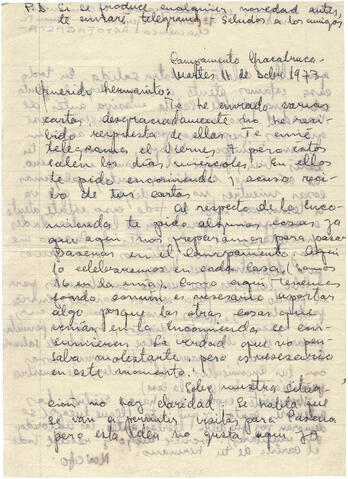 P.D. Si se produce cualquier novedad antes,
te enviaré telegrama. Saludos a los amigos
Campamento Chacabuco.
Martes 11 de Dcbre 1973
Querido hermanito:
Te he enviado varias
cartas desgraciadamente no he reci
bido respuesta de ellas. Te envié
telegrama el Viernes 7 pero estos
salen los días miércoles. En ellos
te pido encomienda y acuso reci
bo de tus cartas.
Al respecto de la enco
mienda te pido algunas cosas ya
que aquí nos preparamos para pasar
Pascuas en el Campamento. Aquí
lo celebraremos en cada casa (somos
16 en la mía). Como aquí tenemos
fondo común es necesario aportar
algo porque las otras cosas que
venían en la encomienda se con
sumieron. La verdad que no pen
saba molestarte pero es necesario
en este momento.
Sobre nuestra situa
ción no hay claridad. Se habla que
se van a permitir visitas para Pascua
pero esta idea no gusta aquí ya